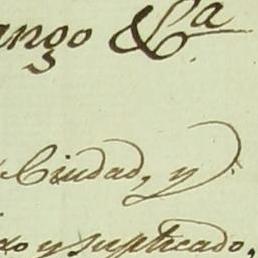 ango &ª
Ciudad, y
xo y suplicado,